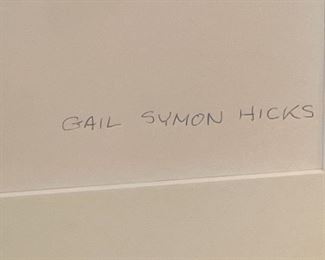 GAIL SYMON HICKS